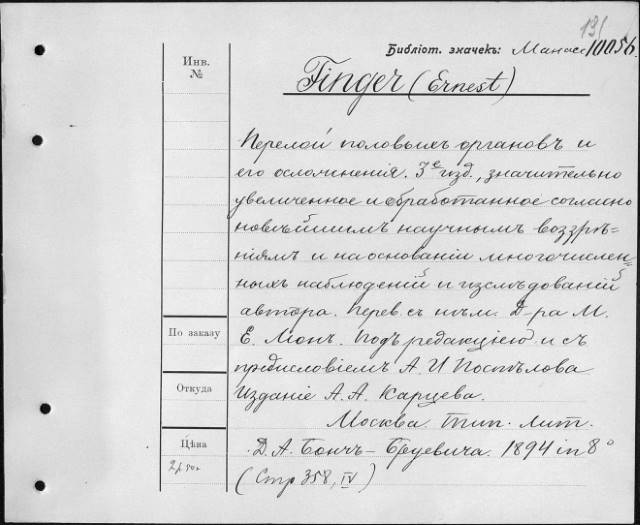 131
Библіот. значекъ: Манасс 10056.
Инв.
№
Finger (Ernest)
Перелой половыхъ органовъ и
его осложненія. 3е изд., значительно
увеличенное и обработанное согласно
новѣйшимъ научнымъ воззрѣ=
ніямъ и на основаніи многочислен=
ныхъ наблюденій и изслѣдованій
автора. Перев. съ нѣм. Д-ра М.
По заказу
Е. Ліонъ. Подъ редакціею и съ
предисловіемъ А. И Поспѣлова
Откуда
Изданіе А. А. Карцева.
Москва. Тип. Лит.
Цѣна
Д. А. Бончъ-Бруевича. 1894 in 8°
2 р 50 к
(Стр 358, IV)